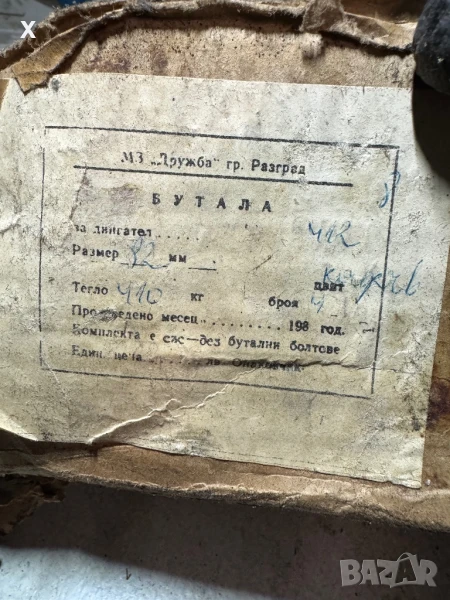 X
МЗ „Дружба" гр. Разград
БУТАЛА
за двигател ..... 412
Размер 82 мм
цвят
Тегло 410 кг броя 4
Произведено месец ......... 198 год.
Комплекта е със—без бутални болтове
Един. цена лв. Опаковчик:
BAZAR